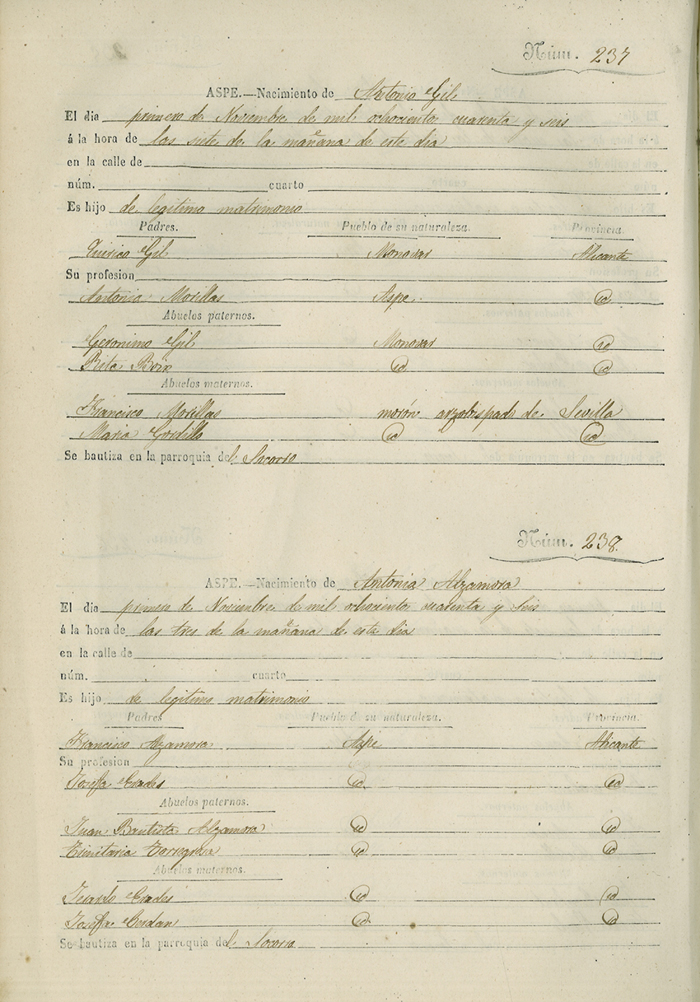 Núm. 237
ASPE.—Nacimiento de Antonio Gil
El dia primero de Noviembre de mil ochocientos cuarenta y seis
á la hora de las siete de la mañana de este dia
en la calle de
núm. cuarto
Es hijo de legitimo matrimonio
Padres. Pueblo de su naturaleza. Provincia.
Gil Monovar Alicante
Su profesion
Antonia Morillas Aspe. id
Abuelos paternos.
Geronimo Gil Monovar id
Rita id id
Abuelos maternos.
Francisco Morillas morón arzobispado de Sevilla
Maria Gordillo id id
Se bautiza en la parroquia del Socorro
Núm. 238.
ASPE.—Nacimiento de Antonia Alzamora
El dia primero de Noviembre de mil ochocientos cuarenta y seis
á la hora de las tres de la mañana de este dia
en la calle de
núm. cuarto
Es hijo de legitimo matrimonio
Padres Pueblo d su naturaleza. Provincia.
Francisco Alzamora Aspe Alicante
Su profesion
Josefa id id
Abuelos paternos.
Juan Bautista Alzamora id id
Trinitaria Torregrosa id id
Abuelos maternos
id id
Josefa Cerdan id id
Se bautiza en la parroquia del Socorro